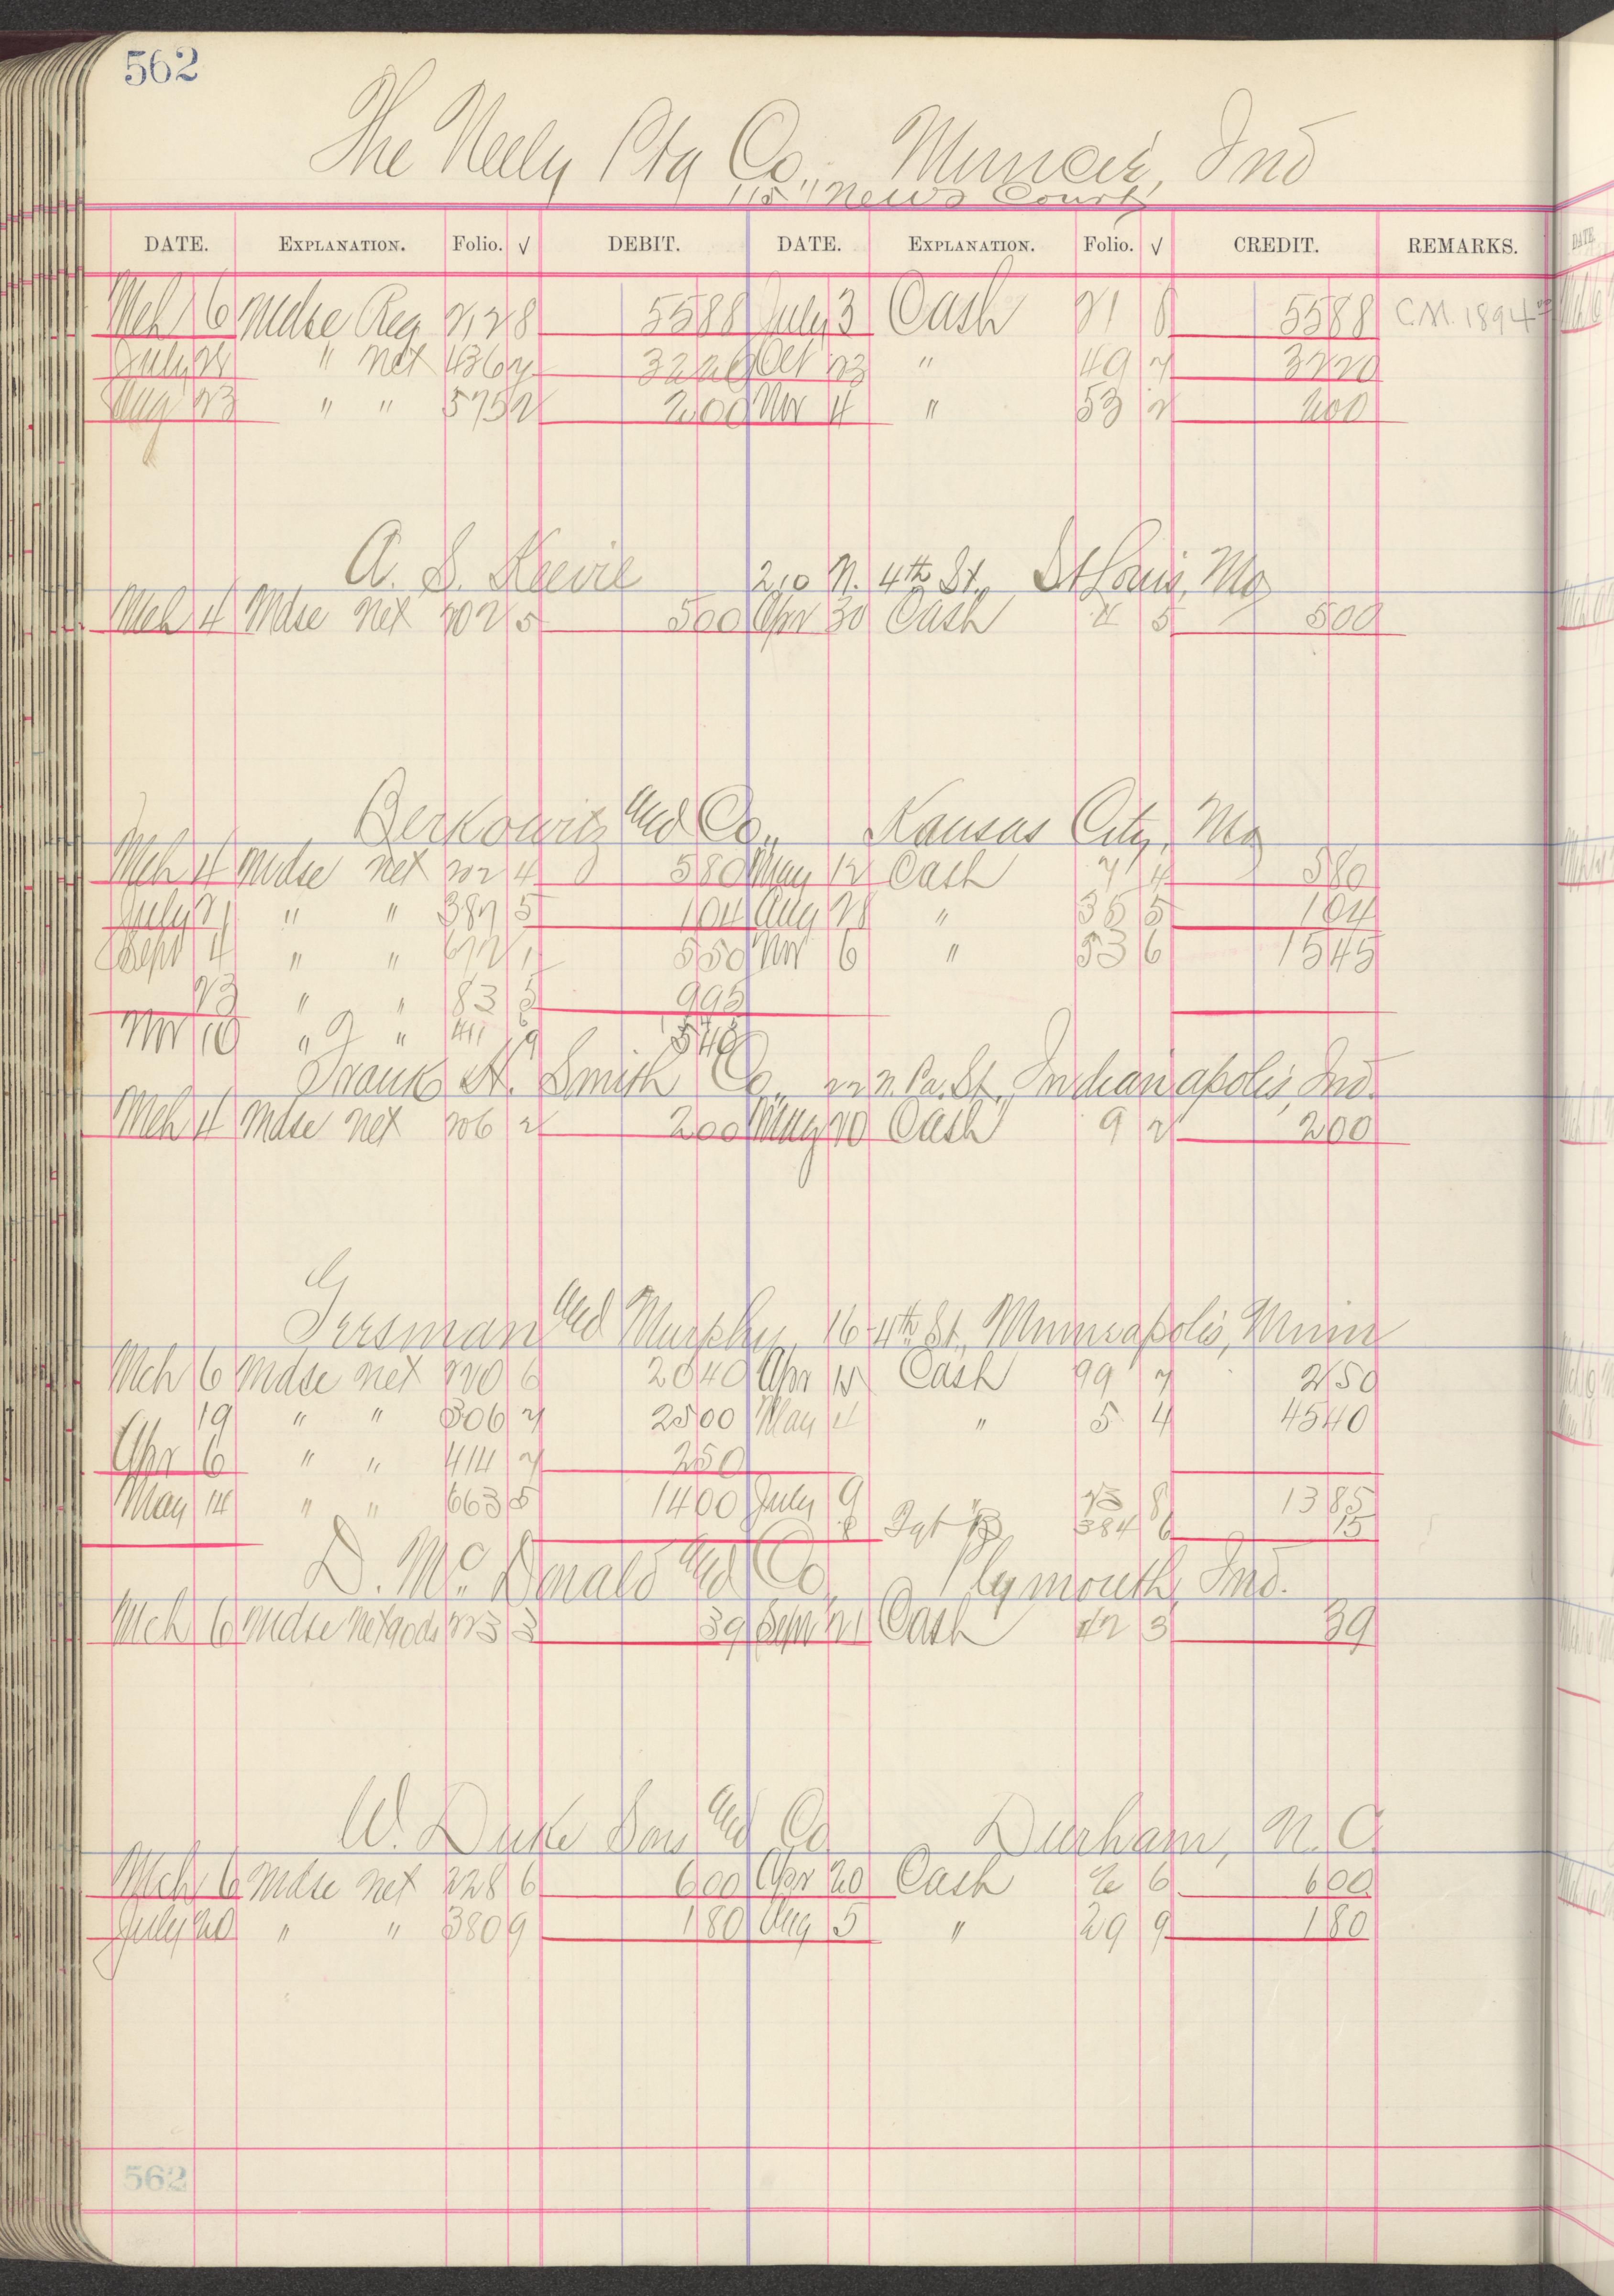 562
The Neely Ptg Co., Muncie, Ind
115 "News Court
DATE. EXPLANATION. Folio. √ DEBIT. DATE. EXPLANATION. Folio. √ CREDIT. REMARKS.
Mch 6 Mdse Reg 8 5588 July 3 Cash 21 8 5588 C.M. 1894
July " net 436 3220 Oct 23 " 49 2 3220
Aug 23 " " 575 2 200 Nov 4 " 53 2 200
A. S. 210 N. 4th St., St Louis, Mo
Mch 4 Mdse net 202 5 500 Apr 30 Cash 5 500
Berkowitz and Co., Kansas City, Mo
Mch 4 Mdse net 202 4 580 May 12 Cash 7 4 580
July 21 " " 387 5 104 Aug 28 " 36 5 104
Sept 4 " " 1 550 Nov 6 " 53 6 1545
23 " " 83 995
Nov 18 " " 411 9 540
Frank H. Smith Co., 22 N. Pa. St., Indianapolis, Ind.
Mch 4 Mdse net 206 2 200 May 20 Cash 9 2 200
Gressman and Murphy, 16 4th St., Minneapolis, Minn
Mch 6 Mdse net 220 6 2040 Apr Cash 99 7 250
19 " " 306 2 2500 May 4 " 5 4 4540
Apr 6 " " 414 2 250
May 14 " " 663 5 1400 July 9 8 1385
8 384 6 15
D. McDonald and Co, Plymouth, Ind.
Mch 6 Mdse Net 90ds 223 3 39 Sept 21 Cash 42 3 39
W. Duke Sons and Co Durham, N. C
Mch 6 Mdse net 228 6 600 Apr 20 Cash 6 600
July 20 " " 380 9 180 Aug 5 " 29 9 180
562